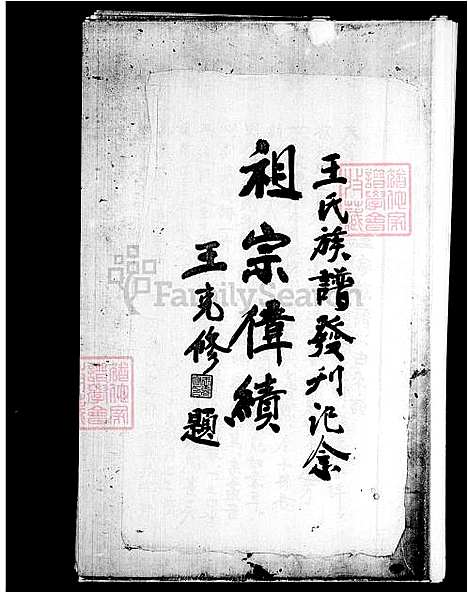 王氏族譜發刊记念
祖宗偉績
王克修
題
FamilySearch